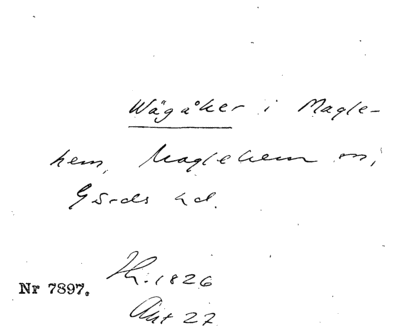 Wägåker i Magle-
hem, Maglehem sn,
Gärds hd.
Nr 7897.
1826
Akt 27